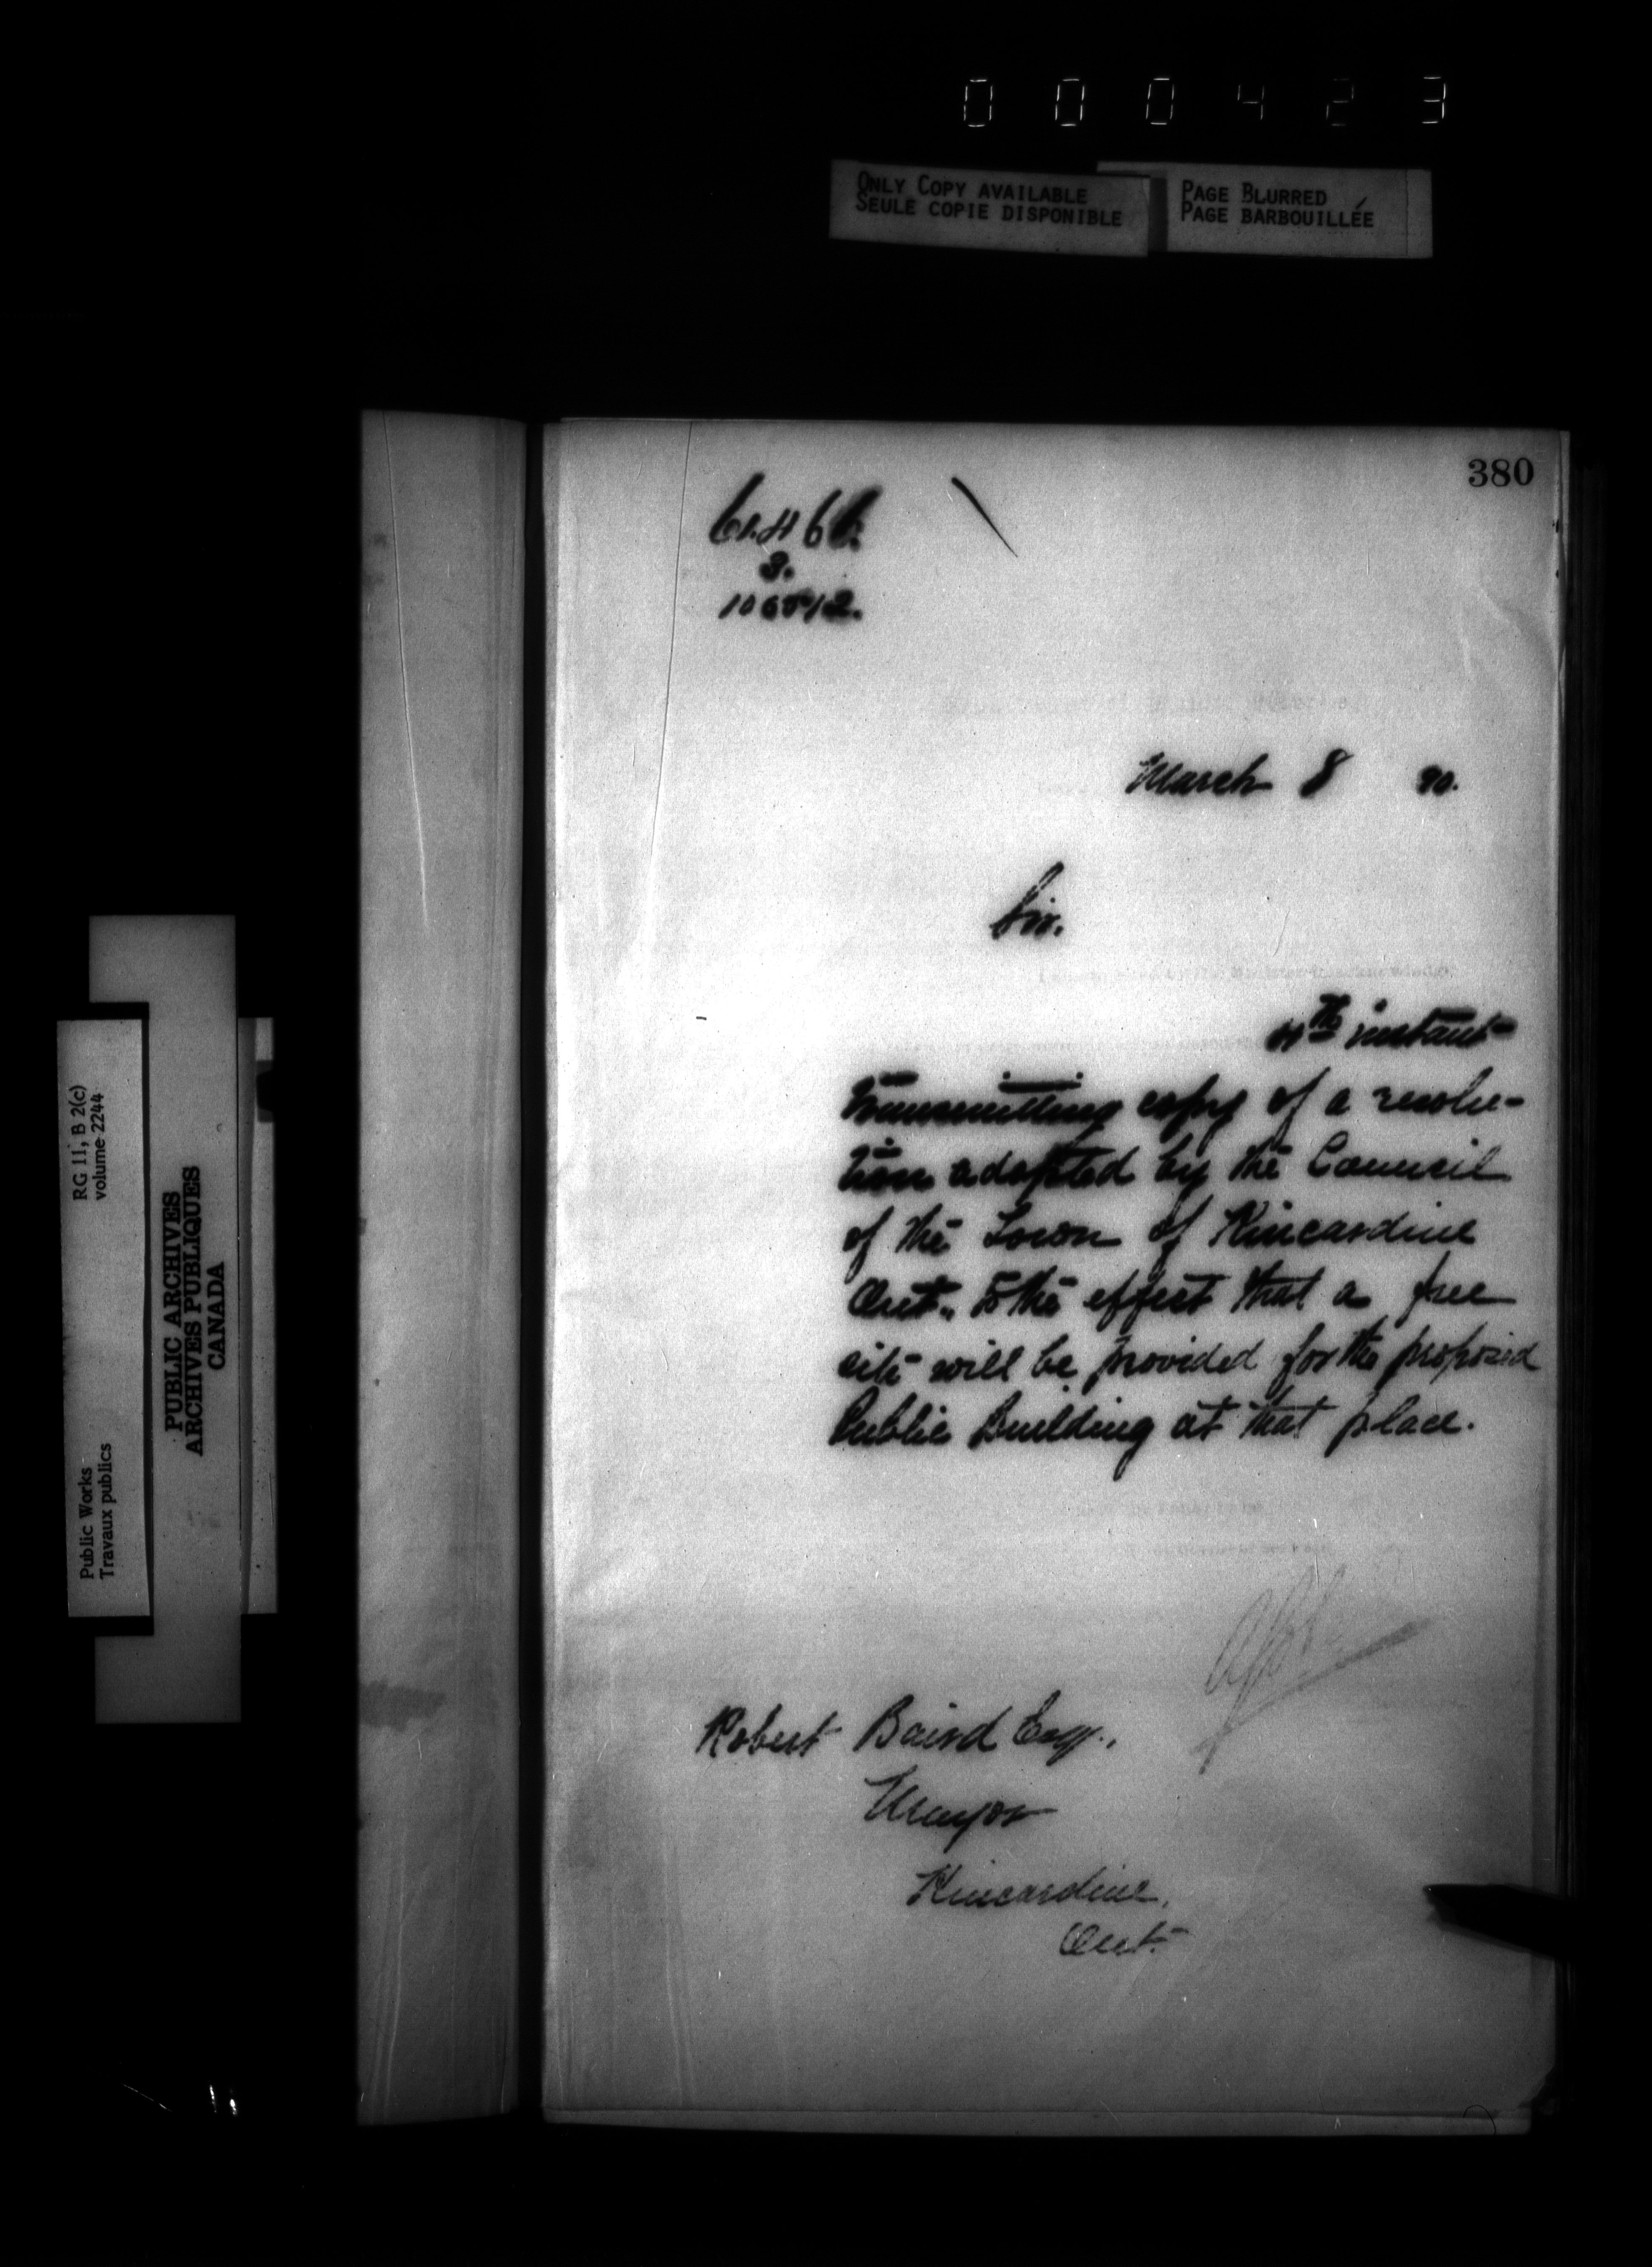 000423
ONLY COPY AVAILABLE
SEULE COPIE DISPONIBLE
PAGE BLURRED
PAGE BARBOUILLÉE
380
3.
March 8 90.
Sir.
4th instant
transmitting copy of a resolu-
tion adopted by the Council
of the Town of Kincardine
Ont., to the effect that a free
site will be provided for the proposed
Public Building at that place.
Robert Baird Esq.,
Mayor
Kincardine,
Ont.
RG 11, B 2(c)
volume 2244
Public Works
Travaux publics
PUBLIC ARCHIVES
ARCHIVES PUBLIQUES
CANADA